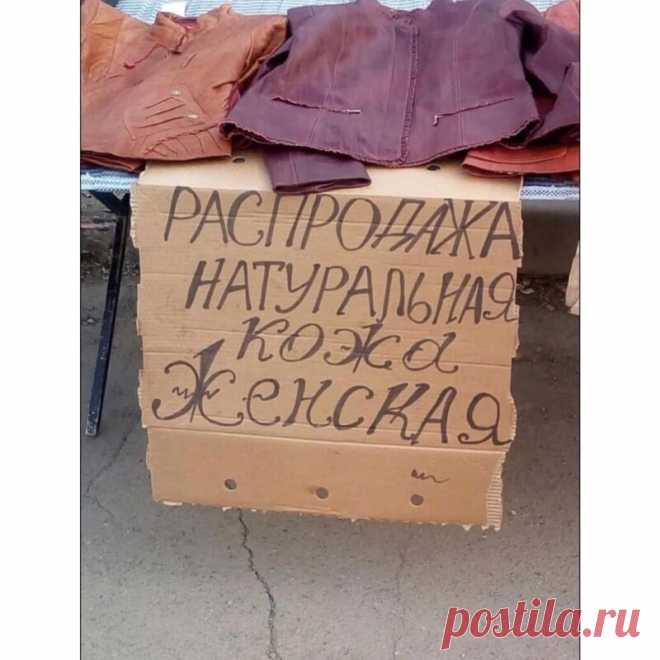 РАСПРОДАЖА
НАТУРАЛЬНАЯ
кожа
Женская
postila.ru